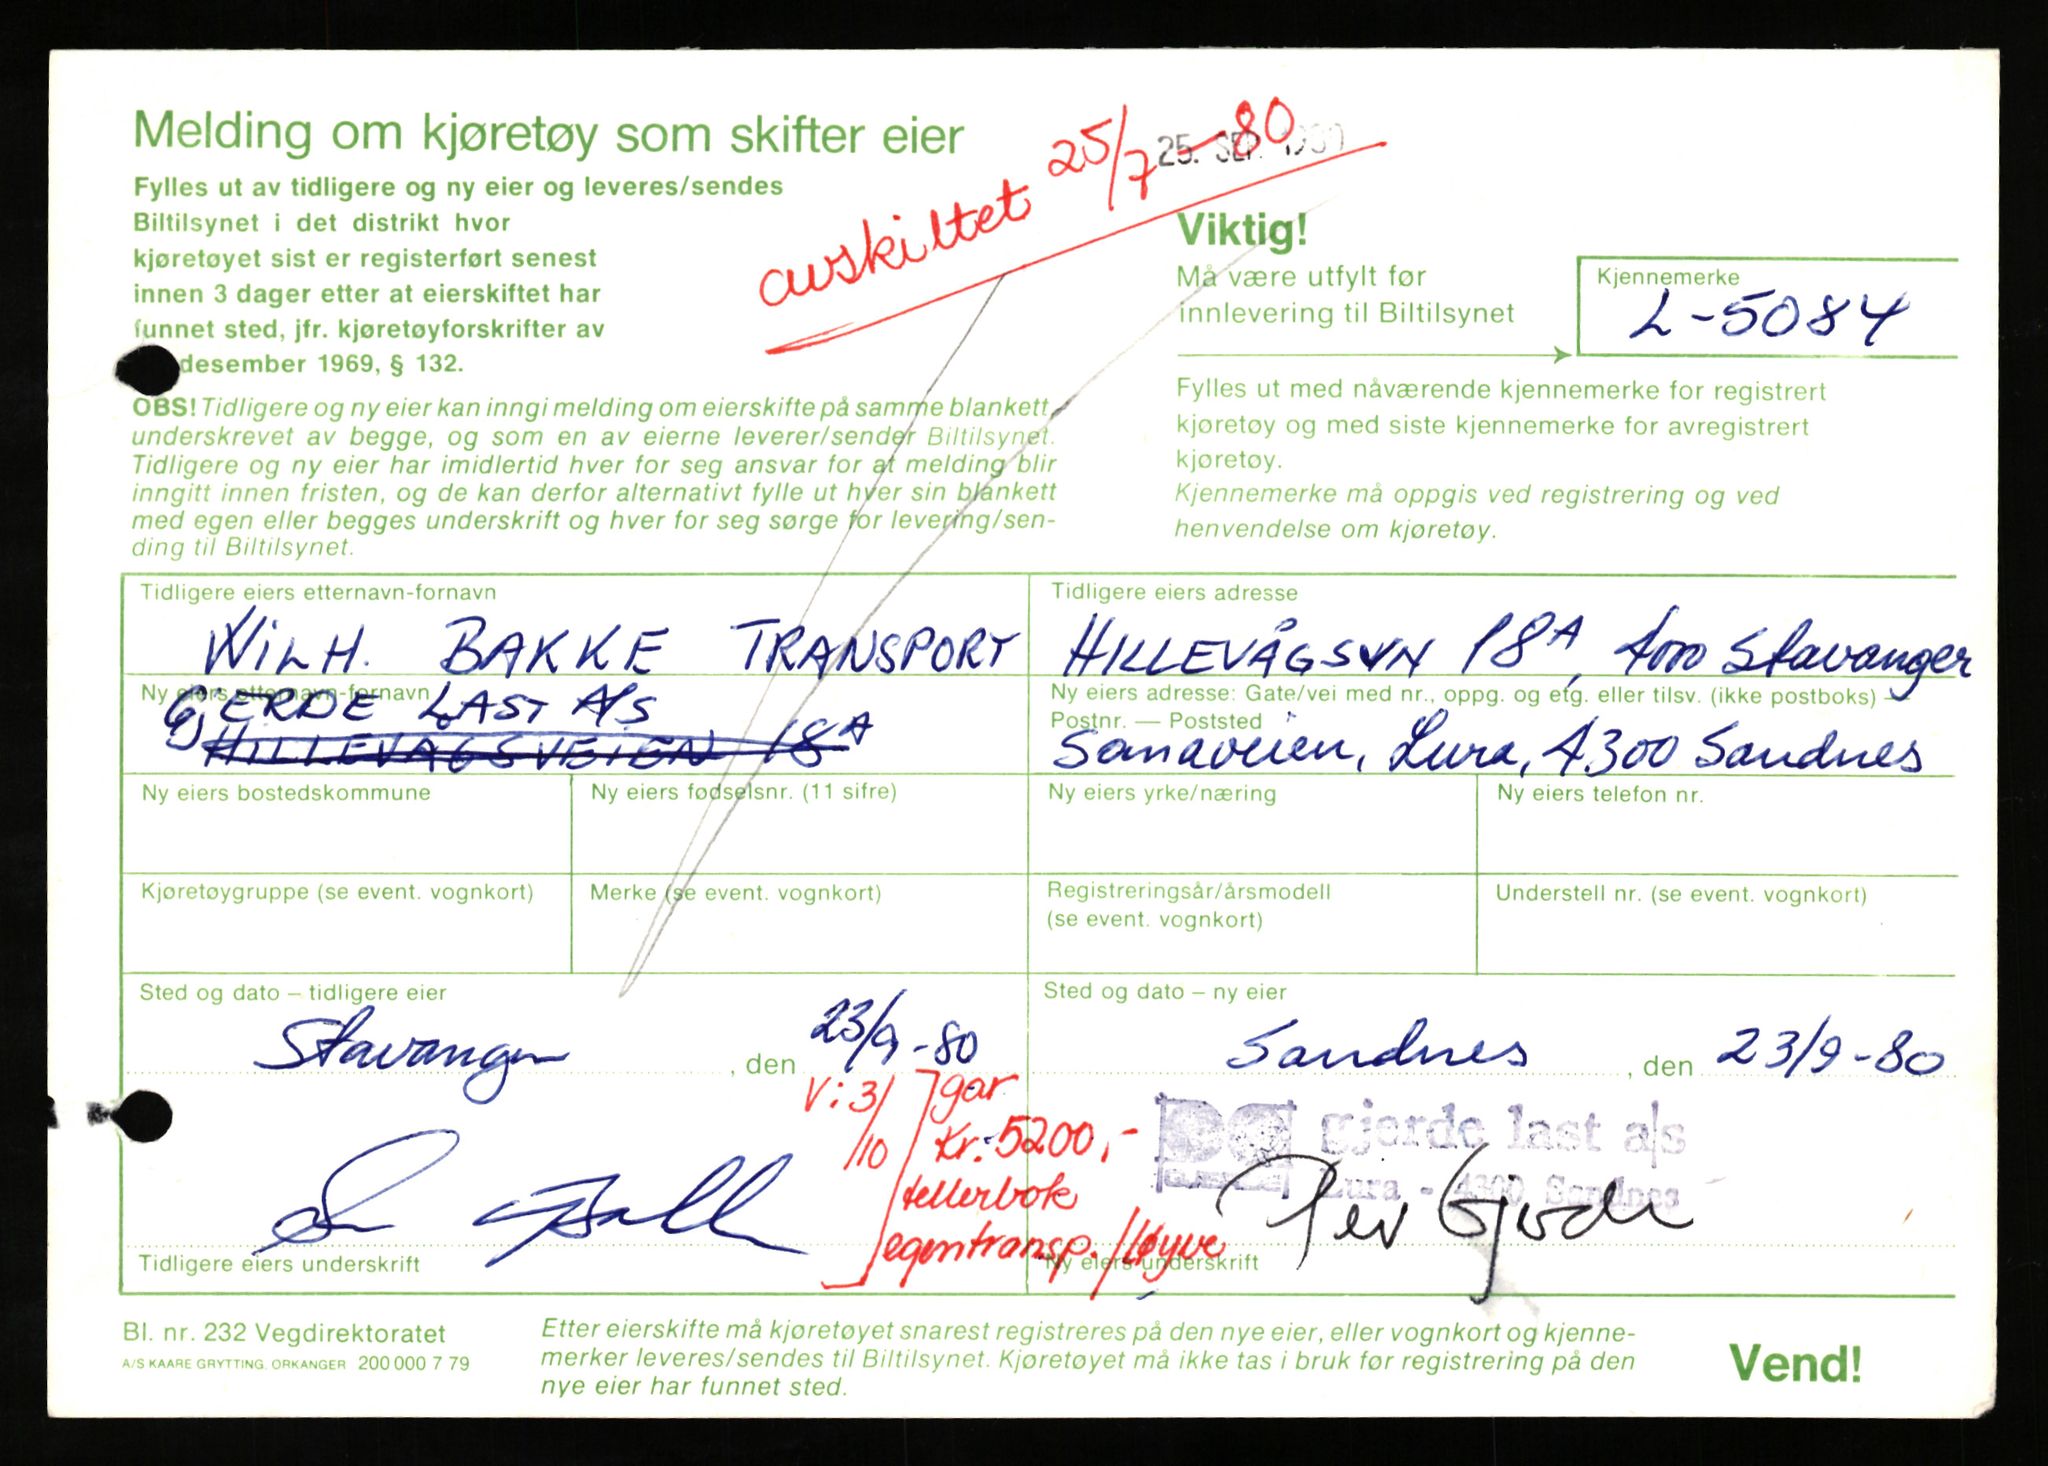 Melding om kjøretøy som skifter eier
Fylles ut av tidligere og ny eier og leveres/sendes
Biltilsynet i det distrikt hvor
kjøretøyet sist er registerført senest
innen 3 dager etter at eierskiftet har
funnet sted, jfr. kjøretøyforskrifter av
desember 1969, § 132.
avskiltet 25/7-80
25. SEP. 1980
Viktig!
Må være utfylt før
innlevering til Biltilsynet
Kjennemerke
L-5084
OBS! Tidligere og ny eier kan inngi melding om eierskifte på samme blankett,
underskrevet av begge, og som en av eierne leverer/sender Biltilsynet.
Tidligere og ny eier har imidlertid hver for seg ansvar for at melding blir
inngitt innen fristen, og de kan derfor alternativt fylle ut hver sin blankett
med egen eller begges underskrift og hver for seg sørge for levering/sen-
ding til Biltilsynet.
Fylles ut med nåværende kjennemerke for registrert
kjøretøy og med siste kjennemerke for avregistrert
kjøretøy.
Kjennemerke må oppgis ved registrering og ved
henvendelse om kjøretøy.
Tidligere eiers etternavn-fornavn
WILH. BAKKE TRANSPORT
Tidligere eiers adresse
HILLEVÅGSVN 18A, 4000 Stavanger
Ny eiers etternavn-fornavn
GJERDE LAST A/S
HILLEVÅGSVEIEN 18A
Ny eiers adresse: Gate/vei med nr., oppg. og etg. eller tilsv. (ikke postboks) —
Postnr. — Poststed
Somaveien, Lura, 4300 Sandnes
Ny eiers bostedskommune
Ny eiers fødselsnr. (11 sifre)
Ny eiers yrke/næring
Ny eiers telefon nr.
Kjøretøygruppe (se event. vognkort)
Merke (se event. vognkort)
Registreringsår/årsmodell
(se event. vognkort)
Understell nr. (se event. vognkort)
Sted og dato – tidligere eier
Stavanger, den 23/9-80
Sted og dato – ny eier
Sandnes, den 23/9-80
V: 3/10
gar
Kr. 5200,-
tellerbok
egentransp./løyve
gjerde last a/s
Lura - 4300 Sandnes
Per Gjerde
Tidligere eiers underskrift
Ny eiers underskrift
Bl. nr. 232 Vegdirektoratet
A/S KAARE GRYTTING, ORKANGER 200 000 7 79
Etter eierskifte må kjøretøyet snarest registreres på den nye eier, eller vognkort og kjenne-
merker leveres/sendes til Biltilsynet. Kjøretøyet må ikke tas i bruk før registrering på den
nye eier har funnet sted.
Vend!